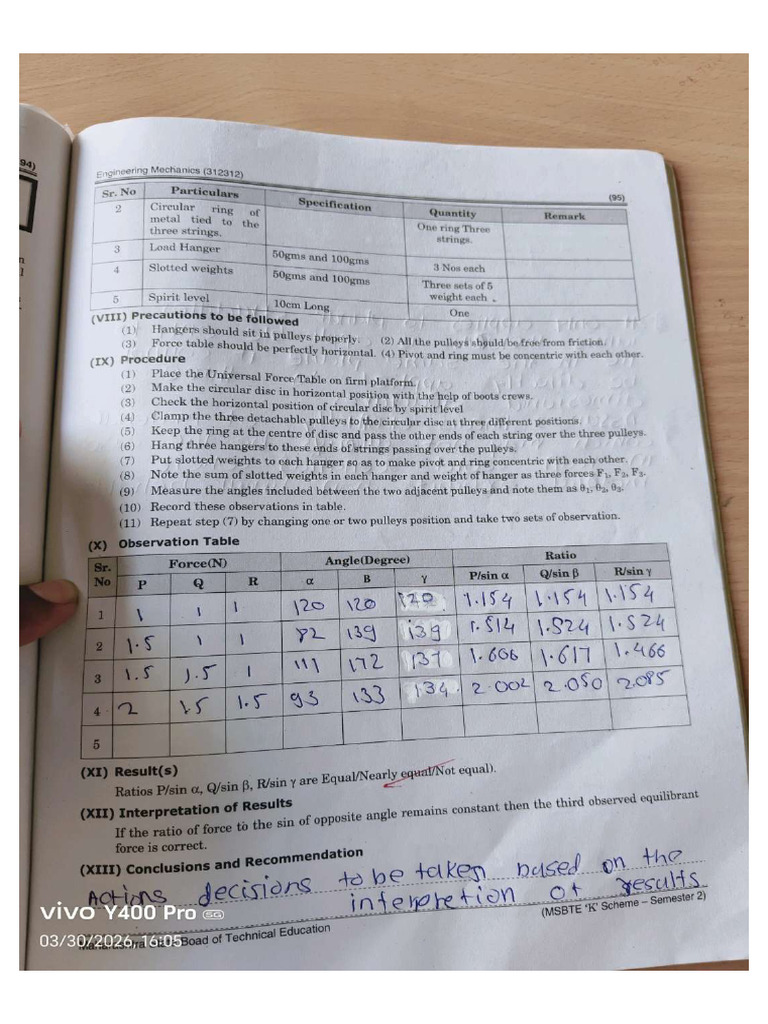 94)
Engineering Mechanics (312312)
(95)
Sr. No Particulars Specification Quantity Remark
2 Circular ring of metal tied to the three strings. One ring Three strings.
3 Load Hanger 50gms and 100gms 3 Nos each
4 Slotted weights 50gms and 100gms Three sets of 5 weight each
5 Spirit level 10cm Long One
(VIII) Precautions to be followed
(1) Hangers should sit in pulleys properly. (2) All the pulleys should be free from friction.
(3) Force table should be perfectly horizontal. (4) Pivot and ring must be concentric with each other.
(IX) Procedure
(1) Place the Universal Force Table on firm platform.
(2) Make the circular disc in horizontal position with the help of boots crews.
(3) Check the horizontal position of circular disc by spirit level
(4) Clamp the three detachable pulleys to the circular disc at three different positions.
(5) Keep the ring at the centre of disc and pass the other ends of each string over the three pulleys.
(6) Hang three hangers to these ends of strings passing over the pulleys.
(7) Put slotted weights to each hanger so as to make pivot and ring concentric with each other.
(8) Note the sum of slotted weights in each hanger and weight of hanger as three forces F₁, F₂, F₃.
(9) Measure the angles included between the two adjacent pulleys and note them as θ₁, θ₂, θ₃.
(10) Record these observations in table.
(11) Repeat step (7) by changing one or two pulleys position and take two sets of observation.
(X) Observation Table
Sr. No Force(N) Angle(Degree) Ratio
P Q R α B γ P/sin α Q/sin β R/sin γ
1 1 1 1 120 120 120 1.154 1.154 1.154
2 1.5 1 1 82 139 139 1.514 1.524 1.524
3 1.5 1.5 1 111 112 137 1.606 1.617 1.466
4 2 1.5 1.5 93 133 134 2.002 2.050 2.085
5
(XI) Result(s)
Ratios P/sin α, Q/sin β, R/sin γ are Equal/Nearly equal/Not equal).
(XII) Interpretation of Results
If the ratio of force to the sin of opposite angle remains constant then the third observed equilibrant
force is correct.
(XIII) Conclusions and Recommendation
Actions decisions to be taken based on the
interpretion of results
(MSBTE 'K' Scheme – Semester 2)
Boad of Technical Education
vivo Y400 Pro 5G
03/30/2026, 16:05